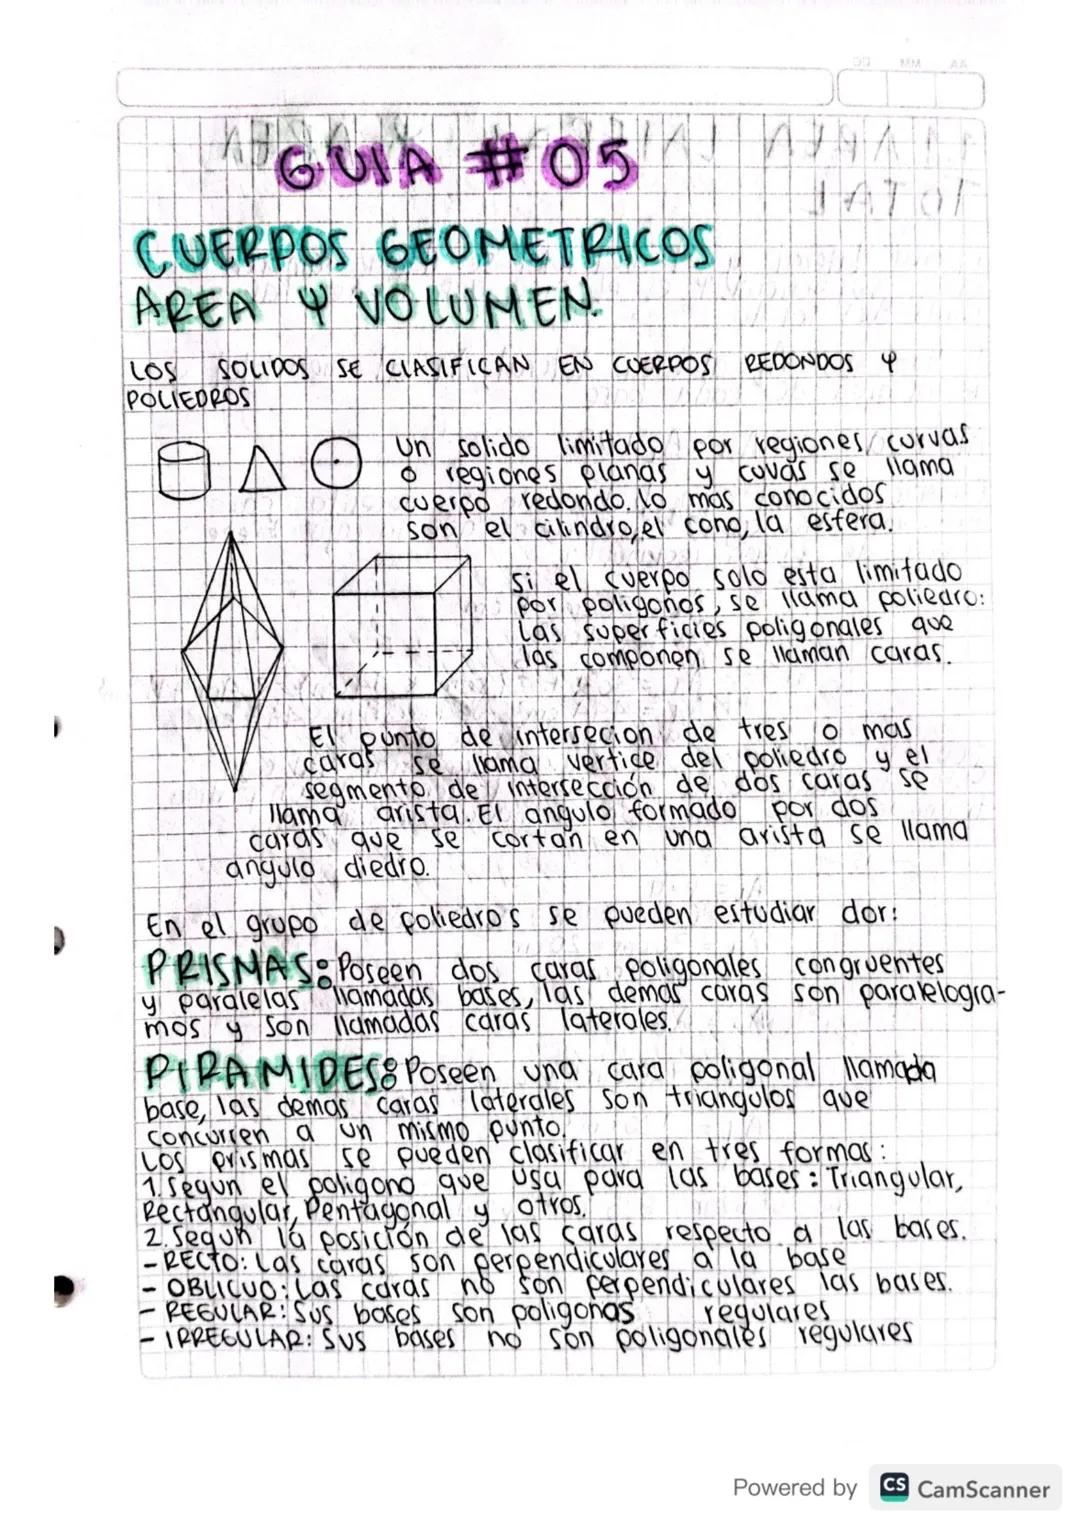 DD MM AA
GUIA #05
CUERPOS GEOMETRICOS
AREA Y VOLUMEN.
LOS SOLIDOS SE CLASIFICAN EN CUERPOS REDONDOS Y
POLIEDROS
Un solido limitado por regiones curvas
o regiones planas y cuvas se llama
cuerpo redondo. lo mas conocidos
son el cilindro, el cono, la esfera.
Si el cuerpo solo esta limitado
por poligonos, se llama poliedro:
Las superficies poligonales que
las componen se llaman caras.
El punto de intersecion de tres o mas
caras se llama vertice del poliedro y el
segmento de intersección de dos caras se
llama arista. El angulo formado por dos
caras que se cortan en una arista se llama
angulo diedro.
En el grupo de poliedros se pueden estudiar dor:
PRISMAS: Poseen dos caras poligonales congruentes
y paralelas llamadas bases, las demas caras son paralelogra-
mos y son llamadas caras laterales.
PIRAMIDES: Poseen una cara poligonal llamada
base, las demas caras laterales son triangulos que
concurren a un mismo punto.
Los prismas se pueden clasificar en tres formas:
1. Segun el poligono que usa para las bases: Triangular,
Rectangular, Pentagonal y otros.
2. Segun la posición de las caras respecto a las bases.
- RECTO: Las caras son perpendiculares a la base
- OBLICUO: Las caras no son perpendiculares las bases.
- REGULAR: Sus bases son poligonos regulares
- IRREGULAR: Sus bases no son poligonales regulares
Powered by CS CamScanner